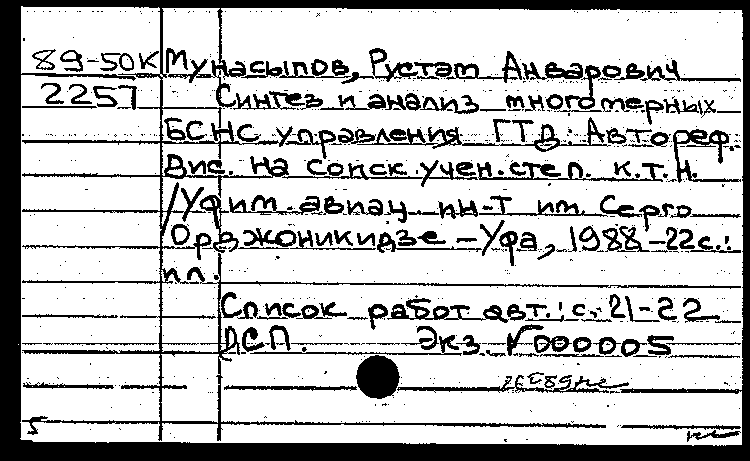 89-50К Мунасыпов, Рустам Анварович
2257 Синтез и анализ многомерных
БСНС управления ГТД: Автореф.
Дис. на соиск. учен. степ. к.т.н.
/Уфим. авиац. ин-т им. Серго
Орджоникидзе. - Уфа, 1988 - 22с.:
ил.
Список работ авт.: с. 21-22
ДСП. Экз. №000005
5